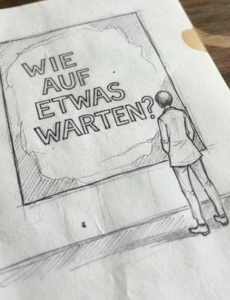 WIE
AUF
ETWAS
WARTEN?